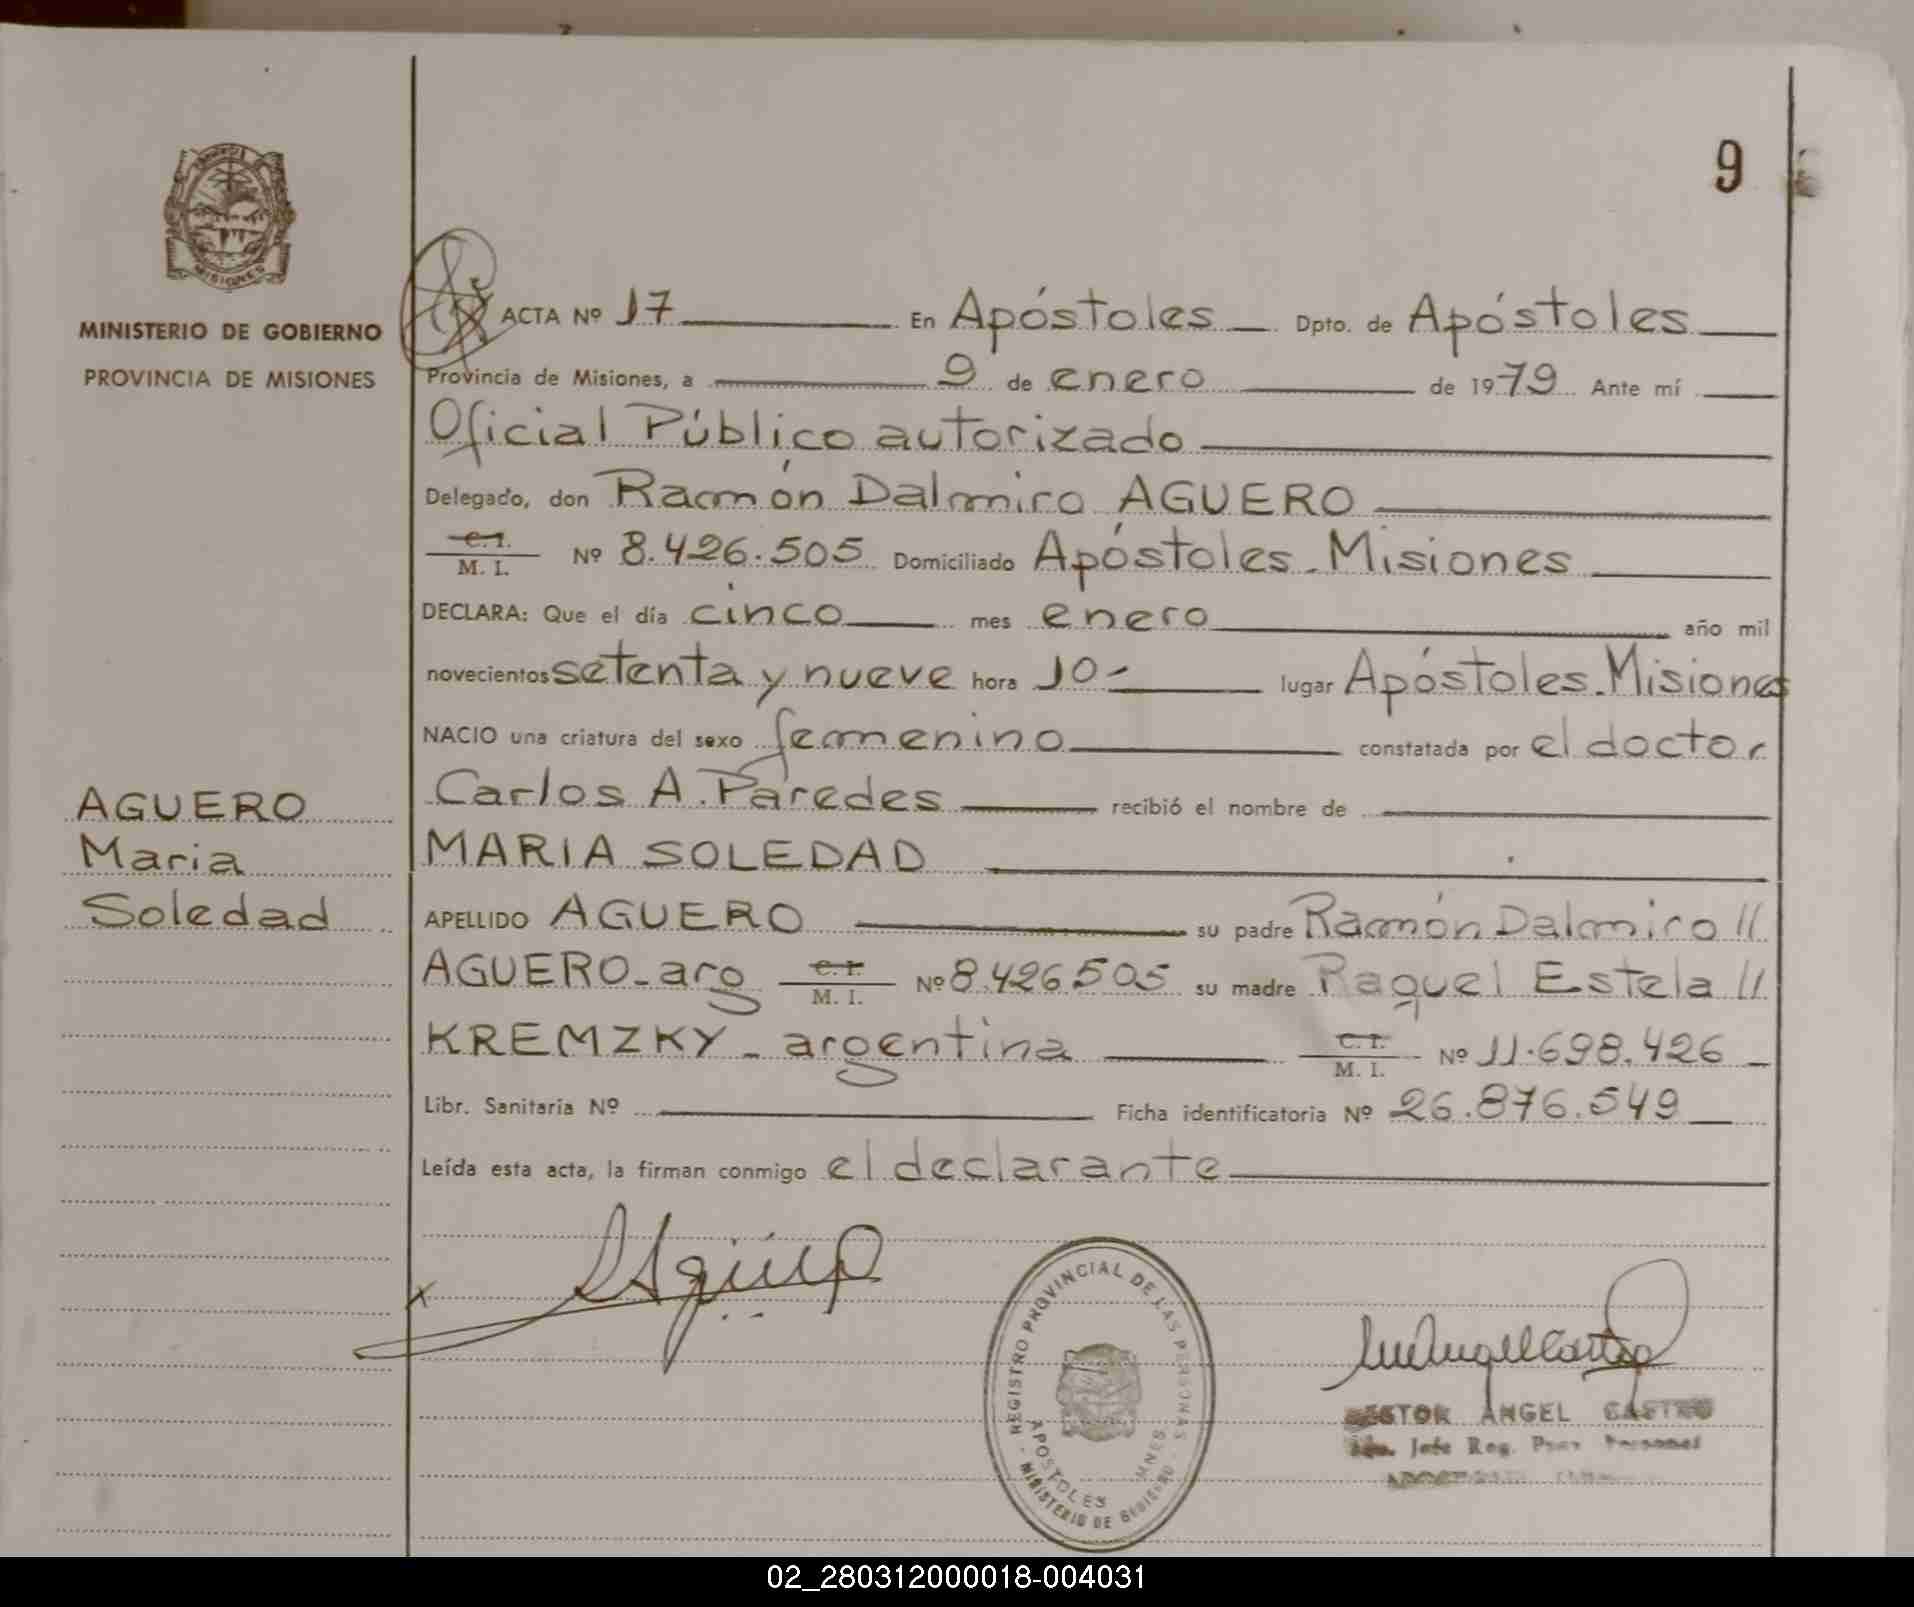 9
PROVINCIA
MISIONES
MINISTERIO DE GOBIERNO
PROVINCIA DE MISIONES
ACTA Nº 17 En Apóstoles Dpto. de Apóstoles
Provincia de Misiones, a 9 de enero de 1979 Ante mí
Oficial Público autorizado
Delegado, don Ramón Dalmiro AGUERO
C.I.
M. I. Nº 8.426.505 Domiciliado Apóstoles-Misiones
DECLARA: Que el día cinco mes enero año mil
novecientos setenta y nueve hora 10- lugar Apóstoles-Misiones
NACIO una criatura del sexo femenino constatada por el doctor
Carlos A. Paredes recibió el nombre de
MARIA SOLEDAD
AGUERO
Maria
Soledad
APELLIDO AGUERO su padre Ramón Dalmiro //
AGUERO-arg C.I. M. I. Nº 8.426.505 su madre Raquel Estela //
KREMZKY - argentina C.I. M. I. Nº 11.698.426
Libr. Sanitaria Nº Ficha identificatoria Nº 26.876.549
Leída esta acta, la firman conmigo el declarante
x
REGISTRO PROVINCIAL DE LAS PERSONAS
MINISTERIO DE GOBIERNO
APOSTOLES MNES
NESTOR ANGEL CASTRO
Jefe Reg. Prov. Personas
02_280312000018-004031